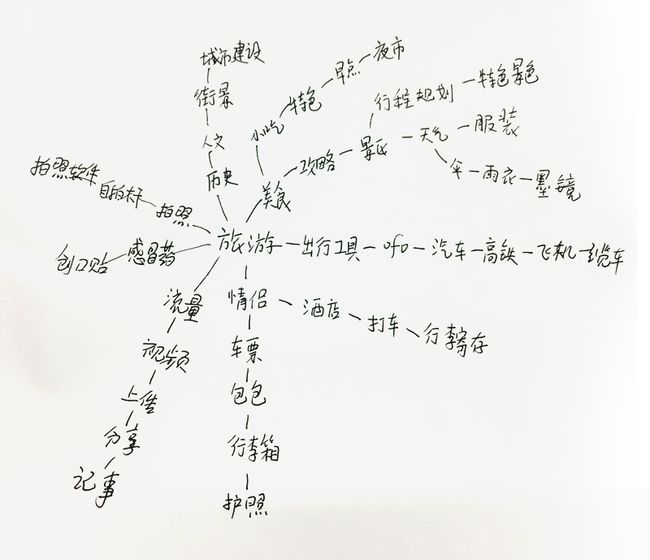 城市建设
街景
人文
历史
小吃 特色 早点 夜市
行程规划 特色景色
美食 攻略 景区 天气 服装
伞 雨衣 墨镜
拍照软件 自拍杆 拍照
创口贴 感冒药
旅游 出行工具 ofo 汽车 高铁 飞机 缆车
流量
视频
上传
分享
记事
情侣 酒店 打车 行李寄存
车票
包包
行李箱
护照